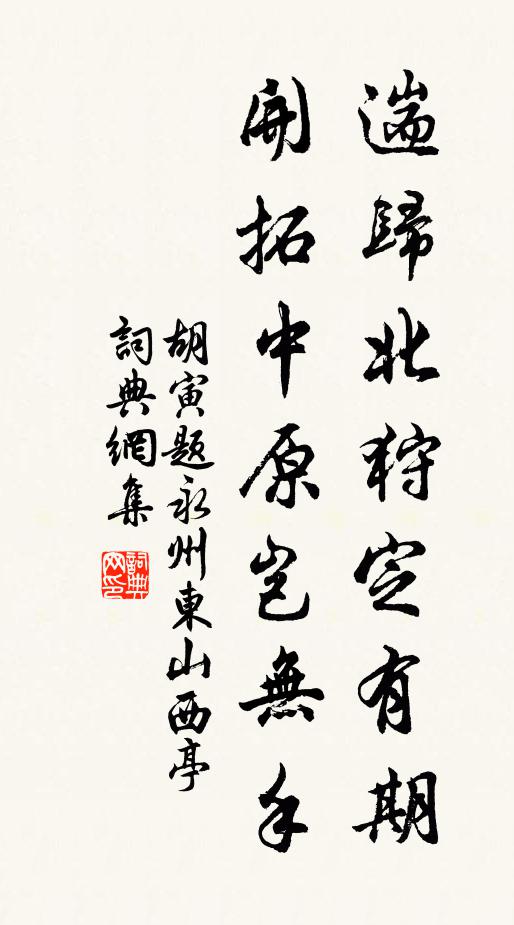 遄歸北狩定有期
開拓中原豈無手
胡寅題永州東山西亭
詞典網集
詞典
网印